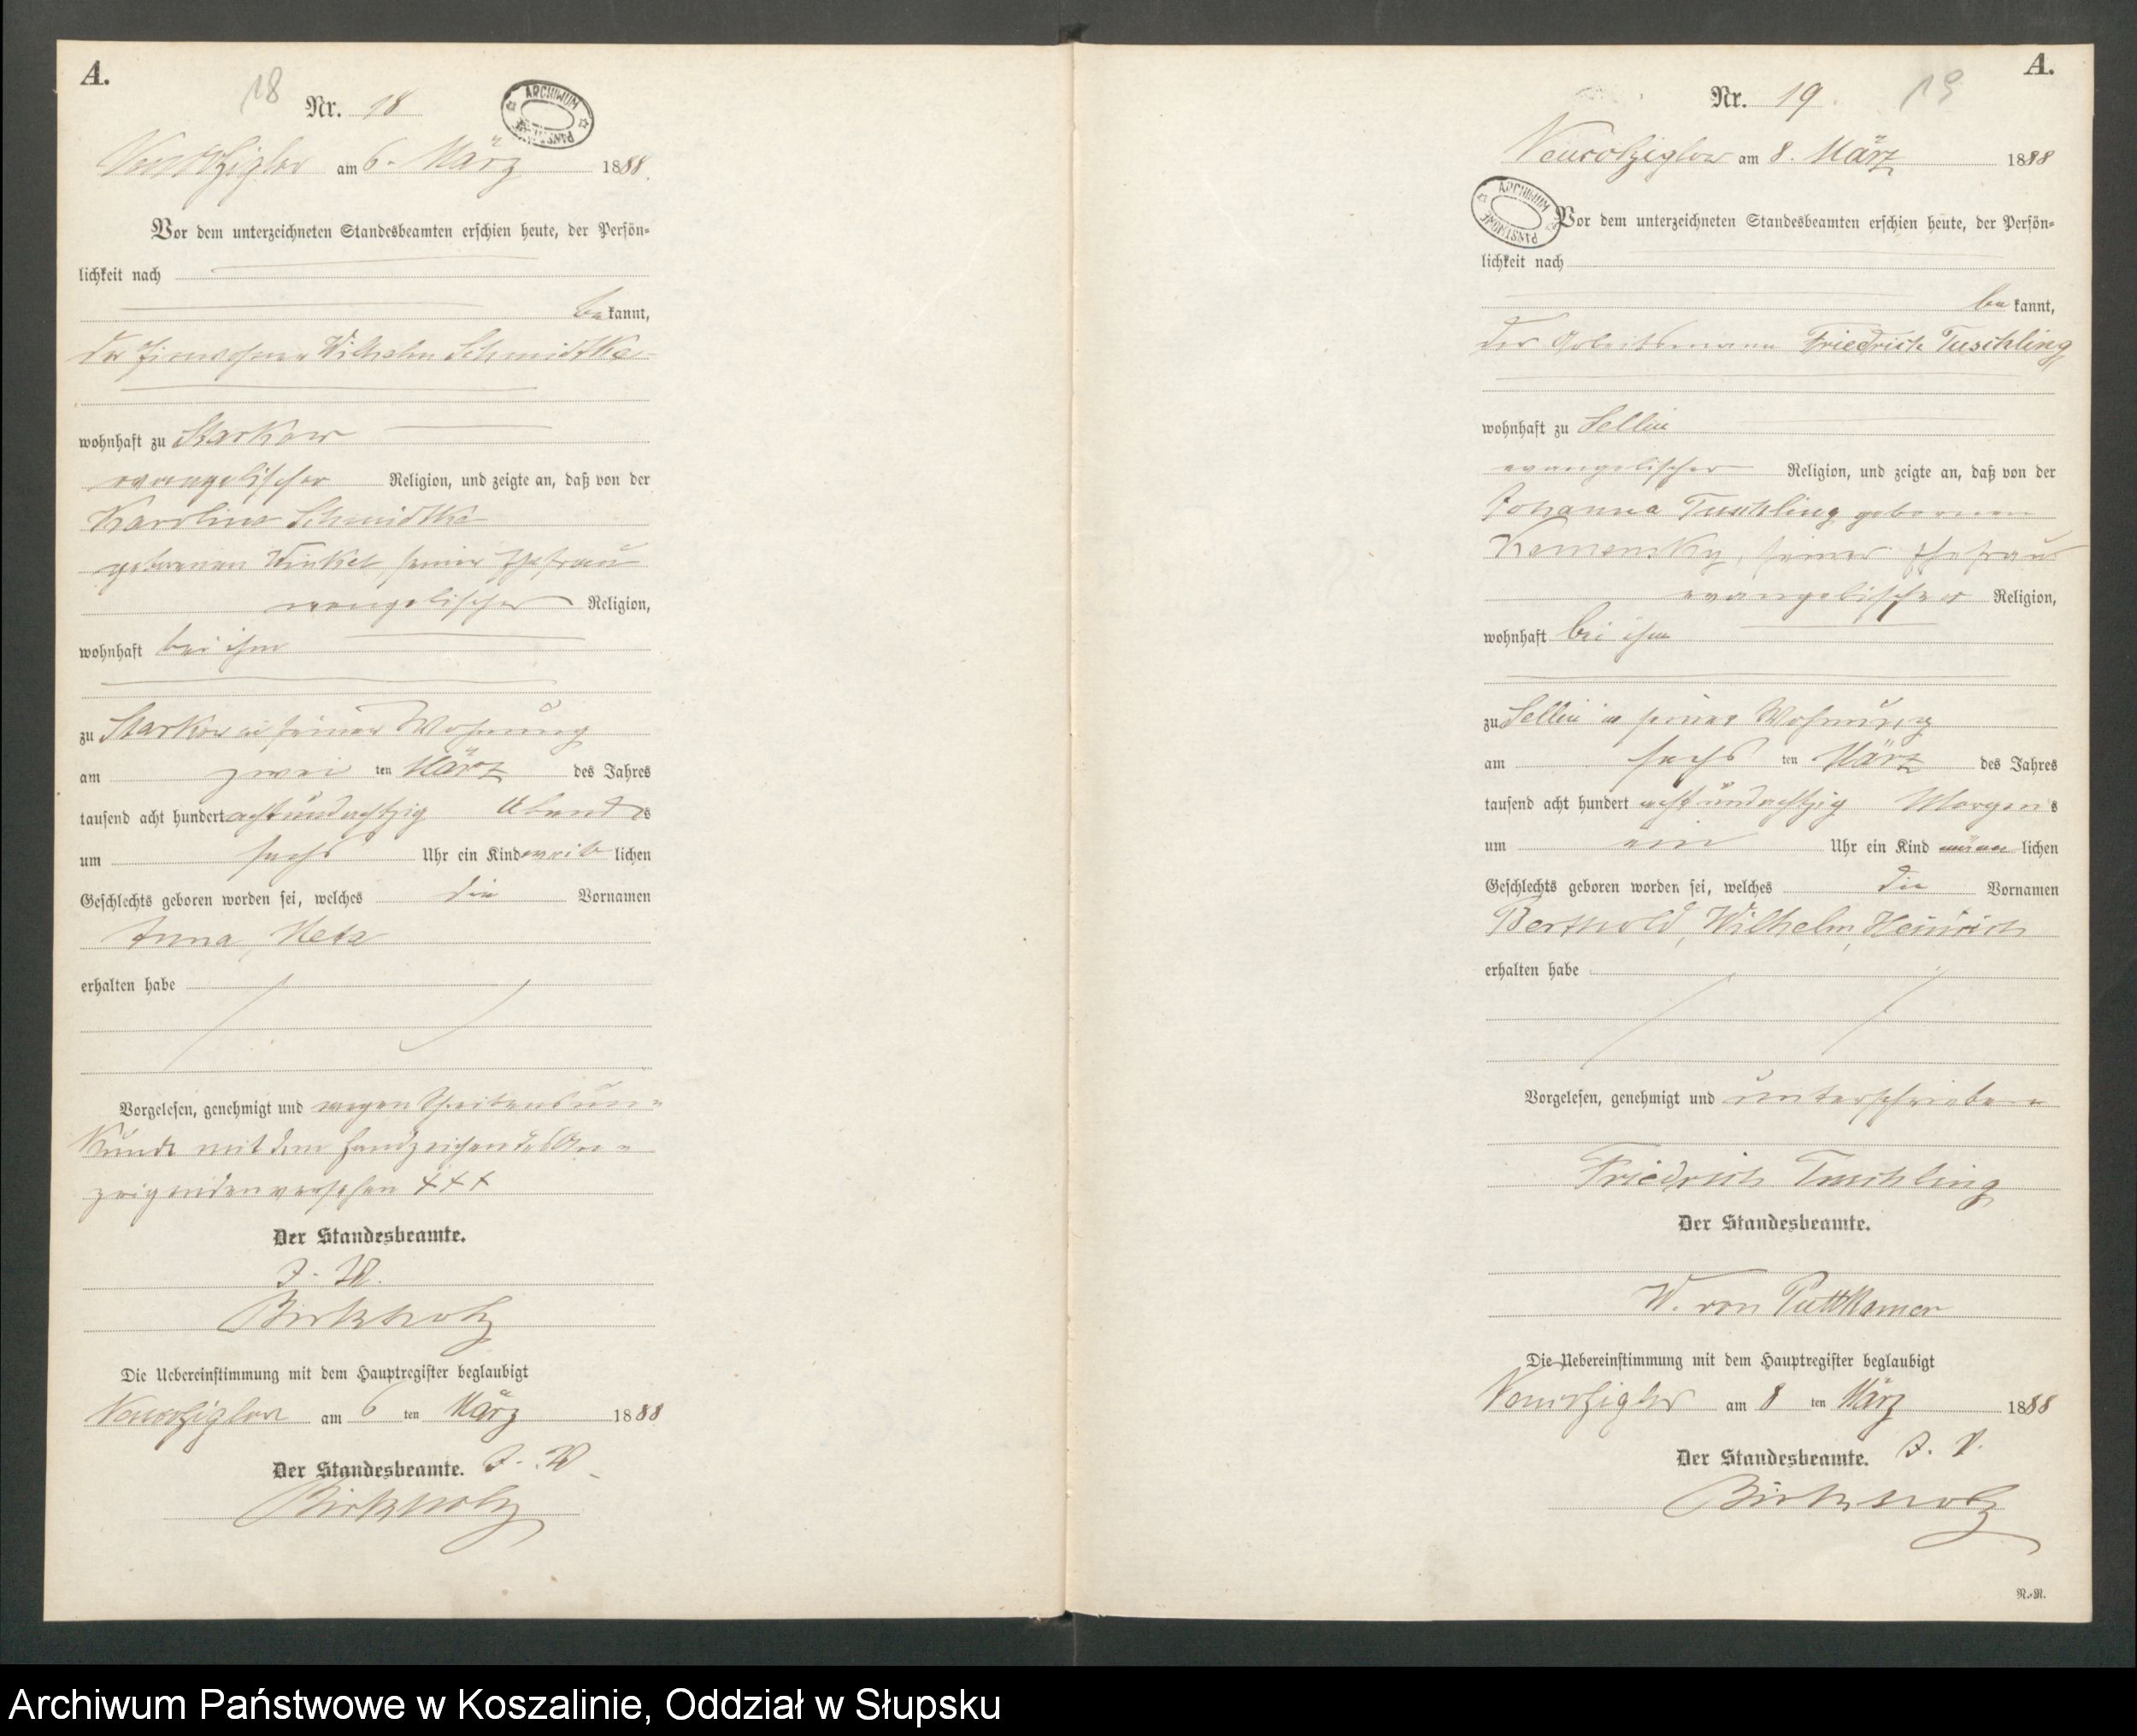 A.
18
Nr. 18
ARCHIWUM PAŃSTWOWE
Neukolziglow am 6. März 1888.
Vor dem unterzeichneten Standesbeamten erschien heute, der Persön-
lichkeit nach
bekannt,
der Einwohner Wilhelm Schmidtke
wohnhaft zu Starkow
evangelischer Religion, und zeigte an, daß von der
Karoline Schmidtke
geborenen Winkel, seiner Ehefrau
evangelischer Religion,
wohnhaft bei ihm
zu Starkow in seiner Wohnung
am zwei ten März des Jahres
tausend acht hundert achtundachtzig Abends
um sechs Uhr ein Kind weiblichen
Geschlechts geboren worden sei, welches die Vornamen
Anna, Meta
erhalten habe
Vorgelesen, genehmigt und wegen Schreibensun-
kunde mit dem Handzeichen des An-
zeigenden versehen +++
Der Standesbeamte.
J. V.
Birkholz
Die Uebereinstimmung mit dem Hauptregister beglaubigt
Neukolziglow am 6 ten März 1888
Der Standesbeamte. J. V.
Birkholz
A.
19
Nr. 19.
Neukolziglow am 8. März 1888
ARCHIWUM PAŃSTWOWE
Vor dem unterzeichneten Standesbeamten erschien heute, der Persön-
lichkeit nach
bekannt,
der Arbeitsmann Friedrich Tuschling
wohnhaft zu Sellin
evangelischer Religion, und zeigte an, daß von der
Johanna Tuschling geborenen
Kemensky, seiner Ehefrau
evangelischer Religion,
wohnhaft bei ihm
zu Sellin in seiner Wohnung
am sechs ten März des Jahres
tausend acht hundert achtundachtzig Morgens
um ein Uhr ein Kind männlichen
Geschlechts geboren worden sei, welches die Vornamen
Berthold, Wilhelm, Heinrich
erhalten habe
Vorgelesen, genehmigt und unterschrieben
Friedrich Tuschling
Der Standesbeamte.
W. von Puttkamer
Die Uebereinstimmung mit dem Hauptregister beglaubigt
Neukolziglow am 8 ten März 1888
Der Standesbeamte. J. V.
Birkholz
N.-N.
Archiwum Państwowe w Koszalinie, Oddział w Słupsku